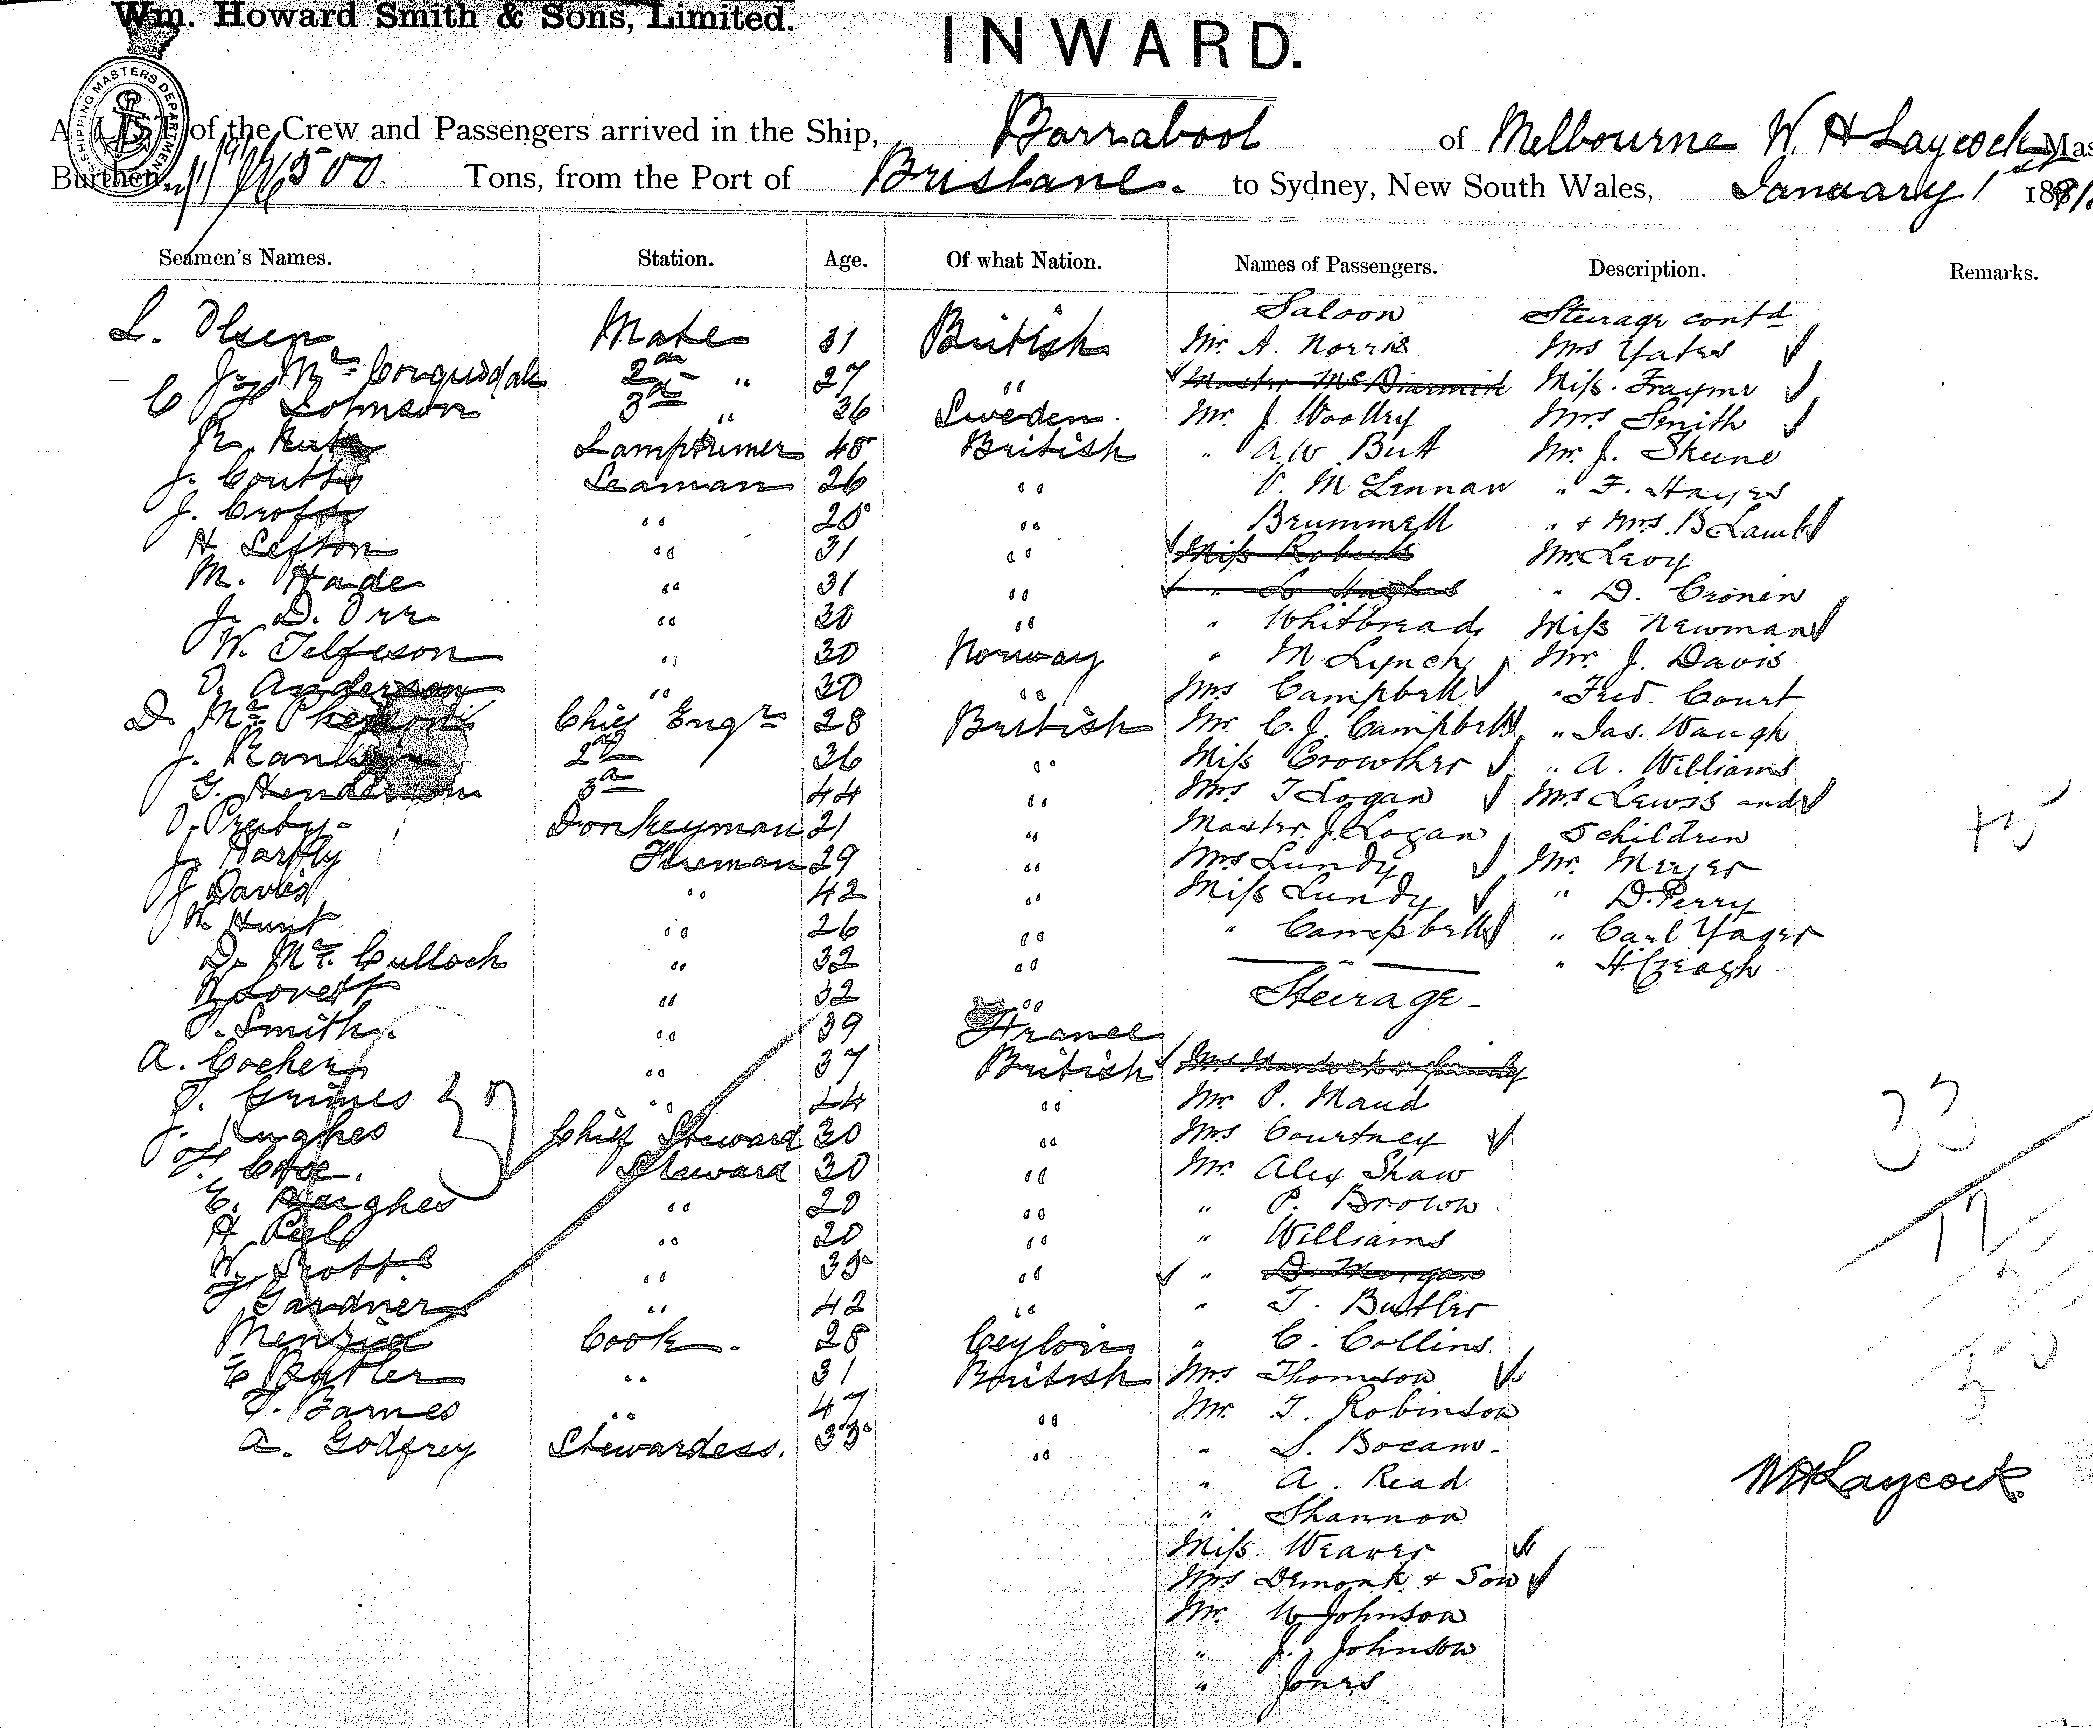 Wm. Howard Smith & Sons, Limited.
INWARD.
SHIPPING MASTERS DEPARTMENT
A LIST of the Crew and Passengers arrived in the Ship, Barrabool of Melbourne W. H Laycock, Mas
Burthen 500 Tons, from the Port of Brisbane. to Sydney, New South Wales, January 1st 1891.
Seamen's Names. Station. Age. Of what Nation. Names of Passengers. Description. Remarks.
Saloon Steerage contd
L. Olsen Mate 31 British Mr. A. Norris Mrs Yates
J. Mc Corquodale 2nd " 27 " Master McDiarmid Miss. Frayme
C Johnson 3rd " 36 Sweden. Mr. J. Woolley Mrs Smith
R. Lamptrimer 48 British " A W. Butt Mr. J. Skene
J. Coutts Seaman 26 " McLennan " F. Hayes
J. Crofts " 28 " Brummell " & Mrs. B Lamb
H Lefton " 31 " Miss Roberts Mr. Levy
M. Hade " 31 " " Hughes " D. Cronin
J. D. Orr " 30 " " Whitbread Miss Newman
W. Telfeson " 30 Norway " M Lynch Mr. J. Davis
O. Anderson " 30 " Mrs Campbell " Fred. Court
D. Mc Pherson Chief Engr 28 British Mr. C. J. Campbell " Jas. Waugh
J. Rankin 2nd 36 " Miss Crowther " A. Williams
G. Henderson 3rd 44 " Mrs T Logan Mrs Lewis and
Donkeyman 21 " Master J. Logan 5 children
J. Hartly Fireman 29 " Mrs Lundy Mr. Meyer
J Davies " 42 " Miss Lundy " D. Perry
W. Hunt " 26 " " Campbell " Carl Yager
D. Mc. Culloch " 32 " " H Creagh
Lovett " 32 " Steerage-
P. Smith. " 39 France
A. Cocher " 37 British Mrs Murdoch & family
T. Grimes " 24 " Mr. P. Maud
J. Hughes Chief Steward 30 " Mrs Courtney
Steward 30 " Mr. Alex Shaw
E. Hughes " 20 " " P. Brown
H Peel " 20 " " Williams
W. " 35 " " D. Morgan
F Gardner " 42 " " T. Butler
Cook. 28 Ceylon " C. Collins.
E Butler " 31 British Mrs Thomson
T. Barnes " 47 " Mr. T. Robinson
a. Godfrey Stewardess. 33 " " S. Bocam.
" A. Read
" Shannon
Miss Weaver
Mrs Demonk & Son
Mr. W Johnson
" J. Johnson
" Jones
33
17
WHLaycock.